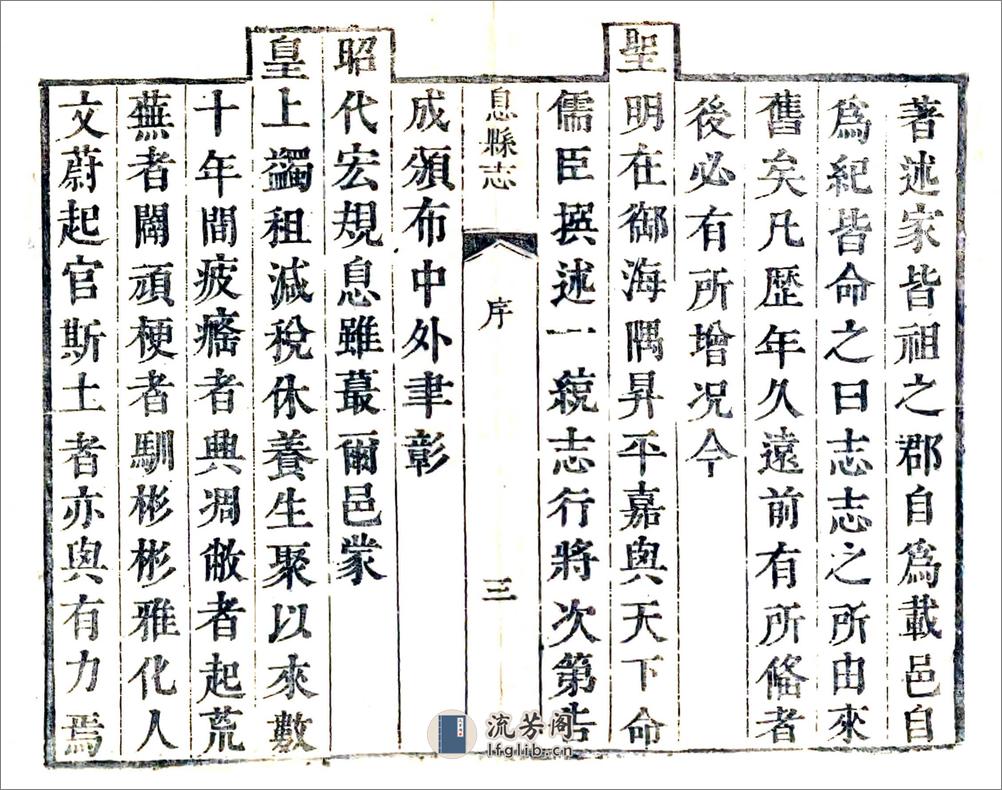 著述家皆祖之郡自爲載邑自
爲紀皆命之曰志志之所由來
舊矣凡歷年久遠前有所俻者
後必有所增况今
聖明在御海隅昇平嘉與天下命
儒臣撰述一統志行將次第告
息縣志
序
三
成頒布中外聿彰
昭代宏規息雖蕞爾邑蒙
皇上蠲租減稅休養生聚以來數
十年間疲癃者興凋敝者起荒
蕪者闢頑梗者馴彬彬雅化人
文蔚起官斯土者亦與有力焉
流芳阁
lfglib.cn